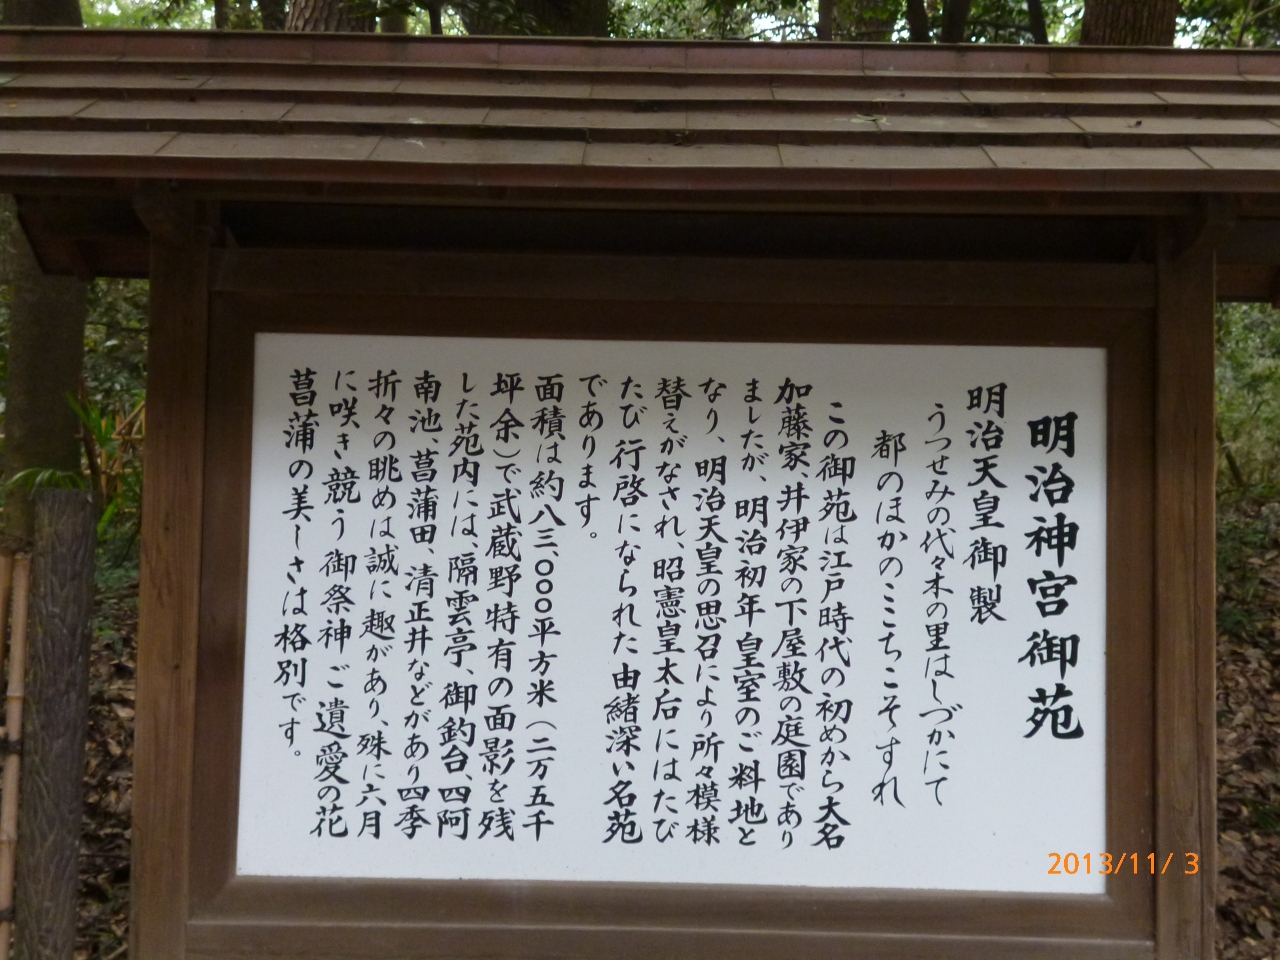 明治神宮御苑
明治天皇御製
うつせみの代々木の里はしづかにて
都のほかのここちこそすれ
この御苑は江戸時代の初めから大名
加藤家、井伊家の下屋敷の庭園であり
ましたが、明治初年皇室のご料地と
なり、明治天皇の思召により所々模様
替えがなされ、昭憲皇太后にはたび
たび行啓になられた由緒深い名苑
であります。
面積は約八三、〇〇〇平方米(二万五千
坪余)で武蔵野特有の面影を残
した苑内には、隔雲亭、御釣台、四阿
南池、菖蒲田、清正井などがあり四季
折々の眺めは誠に趣があり、殊に六月
に咲き競う御祭神ご遺愛の花
菖蒲の美しさは格別です。
2013/11/ 3